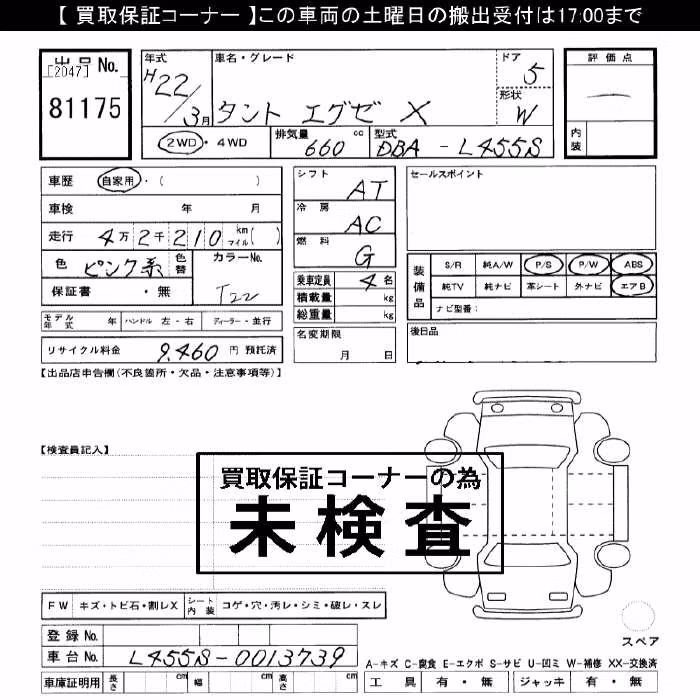 【 買取保証コーナー 】この車両の土曜日の搬出受付は17:00まで
出品 No.
[2047]
81175
年式 H22/3月
車名・グレード タント エグゼ X
ドア 5
形状 W
評価点 —
内装
2WD ・ 4WD
排気量 660 cc
型式 DBA - L455S
車歴 自家用 ・( )
車検 年 月
走行 4万2千210 km マイル( )
色 ピンク系 色替
カラーNo. T22
保証書 ・ 無
モデル年式 年 ハンドル 左・右 ディーラー・並行
リサイクル料金 9,460 円 預託済
シフト AT
冷房 AC
燃料 G
乗車定員 4 名
積載量 kg
総重量 kg
名変期限 月 日
セールスポイント
装備品
S/R 純A/W P/S P/W ABS
純TV 純ナビ 革シート 外ナビ エアB
ナビ型番:
後日品
【出品店申告欄(不良箇所・欠品・注意事項等)】
【検査員記入】
買取保証コーナーの為
未検査
FW キズ・トビ石・割レX シート内装 コゲ・穴・汚レ・シミ・破レ・スレ
登録 No.
車台 No. L455S-0013739
車庫証明用 長さ cm 幅 cm 高さ cm
スペア
A-キズ C-腐食 E-エクボ S-サビ U-凹ミ W-補修 XX-交換済
工具 有・無 ジャッキ 有・無